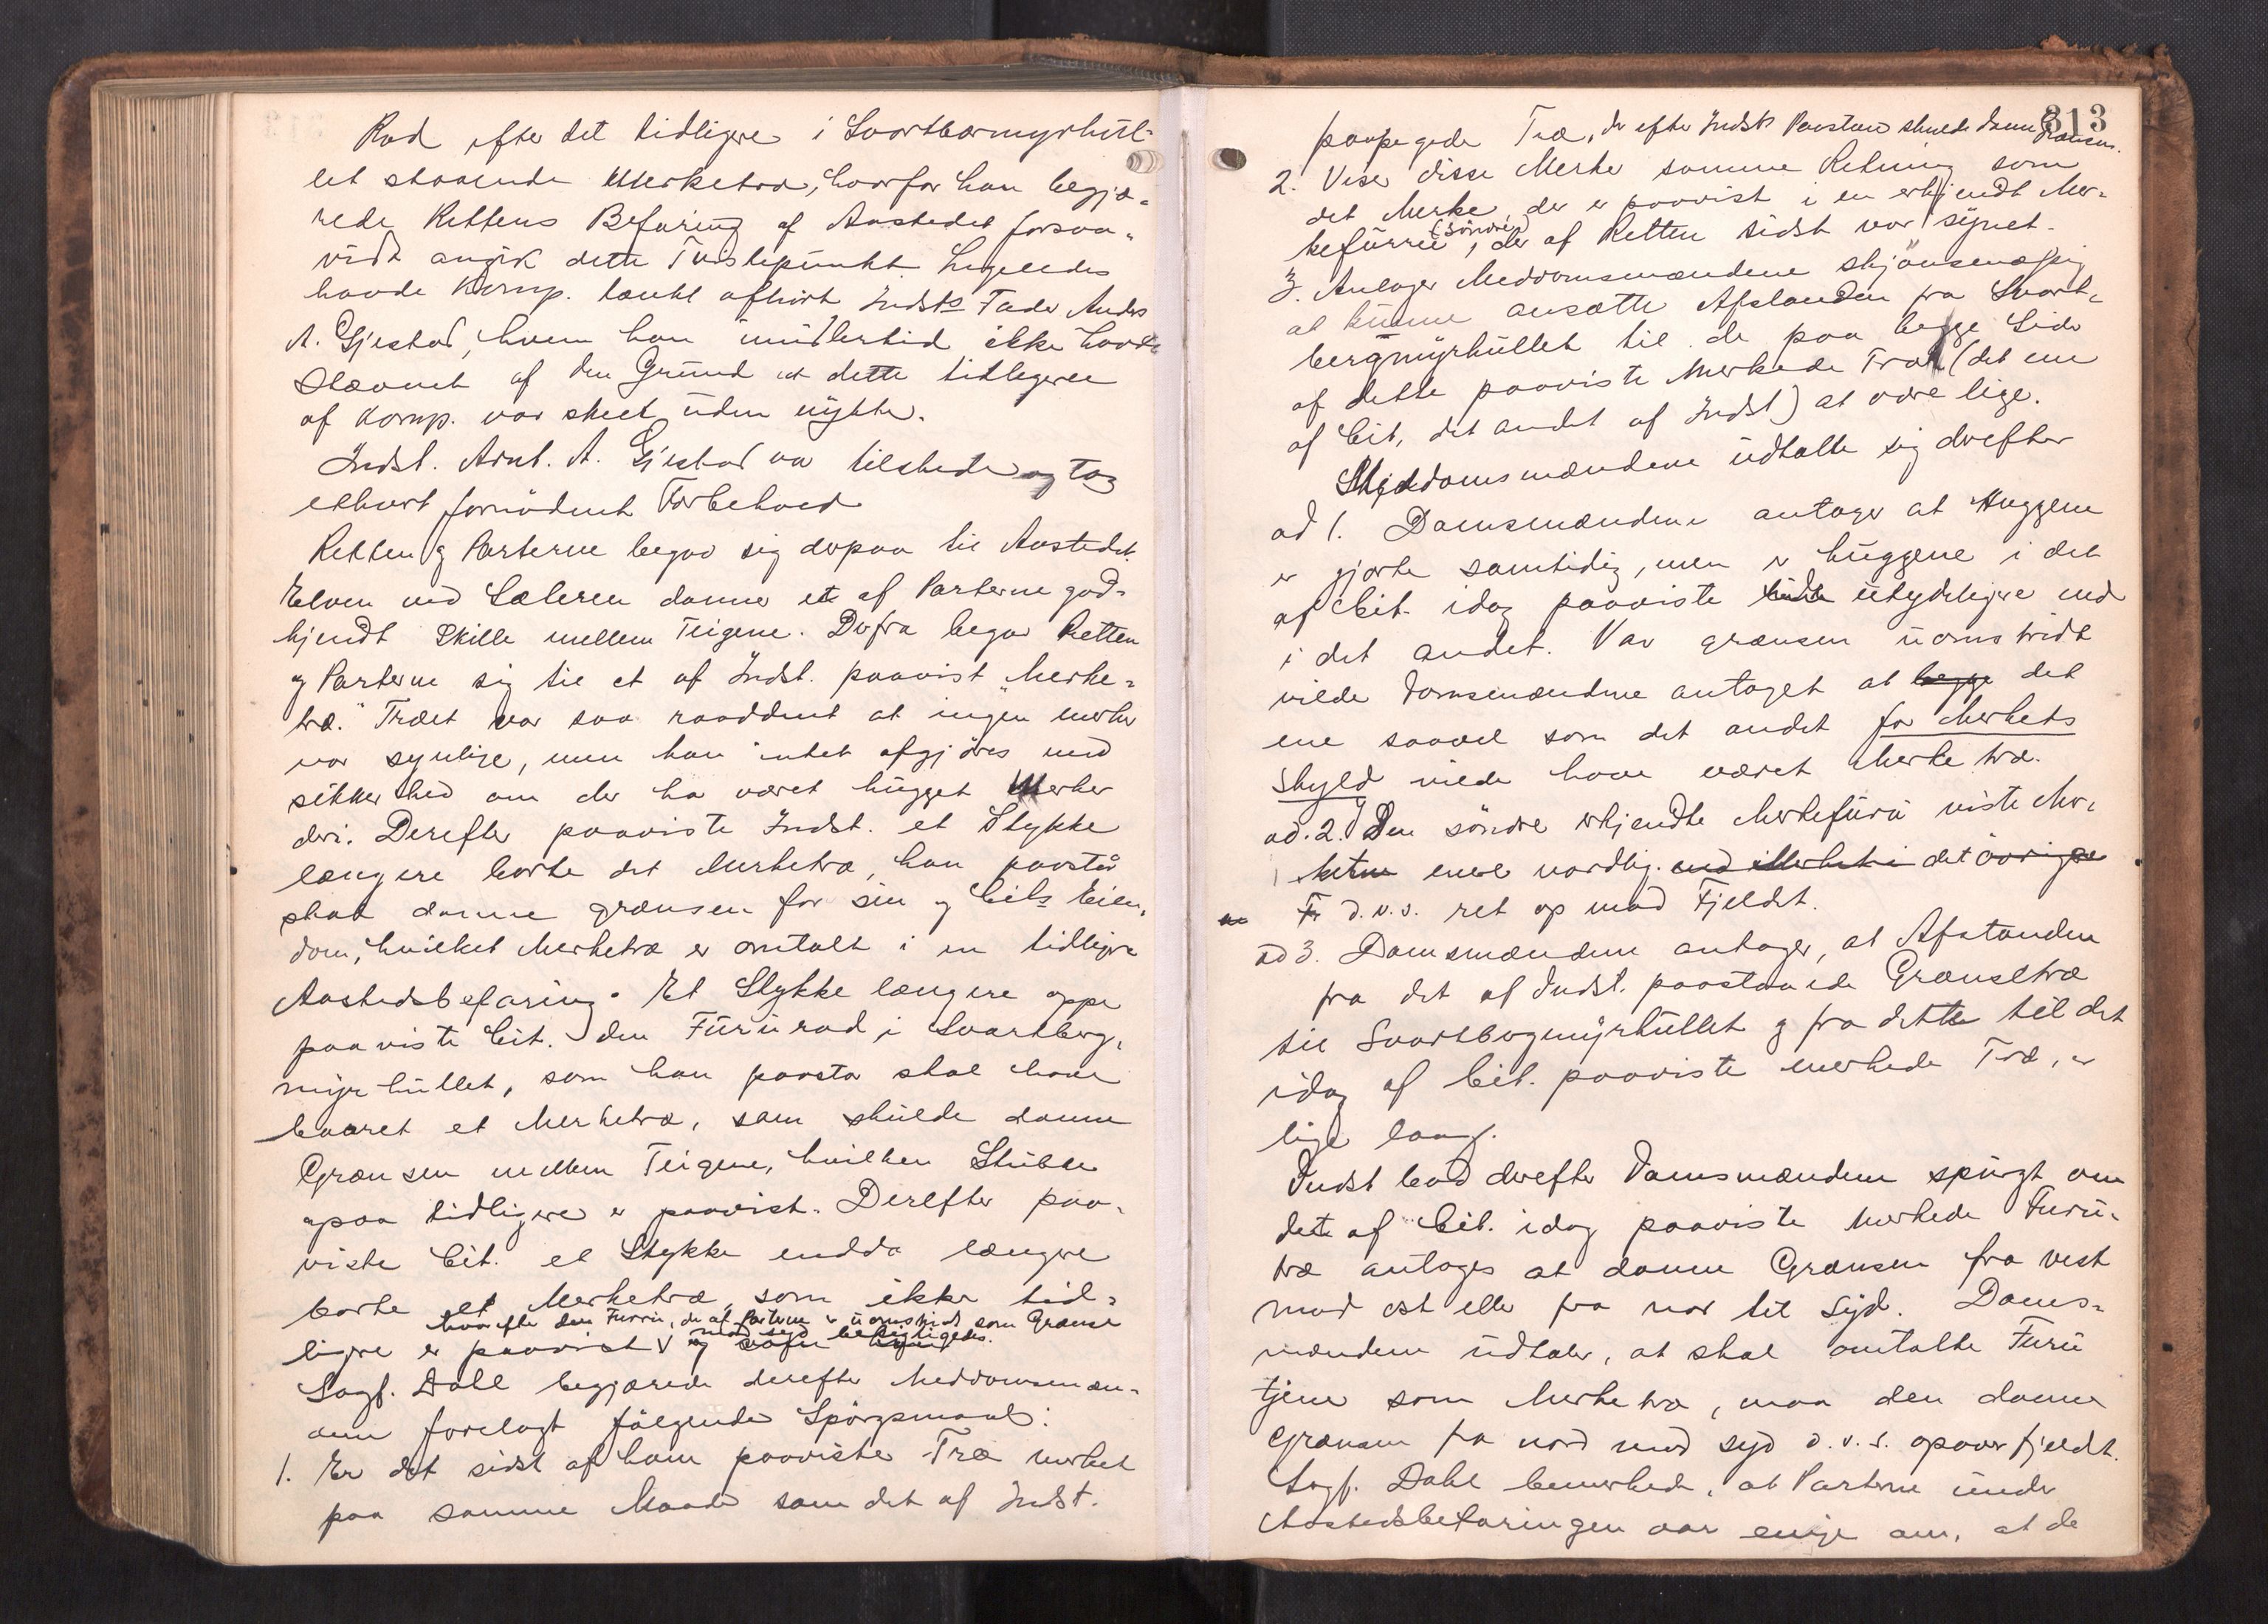 Rod efter det tidligere i Svartbergmyrhül-
let staaende Merketræ, hvorfor han begjæ-
rede Rettens Befaring af Aastedet forsaa-
vidt angik dette Tvistepünkt. Ligeledes
havde Komp. tænkt afhört Indsts Fader Anders
A. Gjestad, hvem han imidlertid ikke havde
stævnet af den Grund at dette tidligere
af Komp. var skeet üden nÿtte.
Indst. Arnt. A. Gjestad var tilstede og tog
ethvert fornödent Forbehold
Retten og Parterne begav sig derpaa til Aastedet.
Elven ved Sæteren danner et af Parterne god-
kjendt Skille mellem Teigene. Derfra begav Retten
og Parterne sig til et af Indst. paavist "Merke-
træ." Træet var saa raaddent at ingen merker
var synlige, men kan intet afgjöres med
sikkerhed om der ha været hügget Merker
deri. Derefter paaviste Indst. et Stykke
længere borte det Merketræ, han paastår
skal danne grænsen for sin og Cits Eien-
dom, hvilket Merketræ er omtalt i en tidligere
Aastedsbefaring. Et Stykke længere oppe
paaviste Cit. den Fürürod i Svartberg-
myrhüllet, som han paastar skal have
baaret et Merketræ, som skülde danne
Grænsen mellem Teigene, hvilken Stübbe
ogsaa tidligere er paavist. Derefter paa-
viste Cit. et Stykke endda længere
borte et Merketræ, som ikke tid-
hvorefter den Furru, der af Parterne er üomstridt som Grænse
mod syd besigtigedes.
ligere er paavist V og
Sagf. Dahl begjærede derefter Meddomsmæn-
dene forelagt fölgende Spörgsmaal:
1. Er det sidst af ham paaviste Træ merket
paa samme Maade som det af Indst.
313
paapegede Træ, der efter Indsts Paastand skulde danne Grænsen.
2. Viser disse Merker samme Retning som
det Merke, der er paavist i en erkjendt Mer-
(söndre)
kefürrü, der af Retten sidst var sÿnet.
3. Antager Meddomsmændene skjönsmæssig
at künne ansætte Afstanden fra Svart-
bergmÿrhüllet til de paa begge Sider
af dette paaviste Merkede Trær (det ene
af Cit, det andet af Indst) at være lige.
Meddomsmændene üdtalte sig derefter
ad 1. Domsmændene antager at Huggene
er gjorte samtidig, men er hüggene i det
af Cit. idag paaviste lidt ütydeligere end
i det andet. Var grænsen üomstridt
vilde Domsmændene antaget at begge det
ene saavel som det andet for Merkets
Skyld vilde have været Merketræ.
ad. 2. Den söndre erkjendte Merkefürü viste Mer-
ketene mere nordlig. end Merket i det övrige
Fr d.v.s. ret op mod Fjeldet.
ad 3. Domsmændene antager, at Afstanden
fra det af Indst. paastaaede Grænsetræ
til Svartbergmÿrhüllet og fra dette til det
idag af Cit. paaviste merkede Træ, er
lige lang.
Indst bad derefter Domsmændene spürgt om
det af Cit. idag paaviste merkede Fürü-
træ antages at danne Grænsen fra vest
mod ost eller fra nor til Syd. Doms-
mændene üdtaler, at skal omtalte Fürü
tjene som Merketræ, maa den danne
Grænsen fra nord mod syd d.v.s. opover fjeldet.
Sagf. Dahl bemerkede, at Parterne ünder
Aastedsbefaringen var enige om, at de